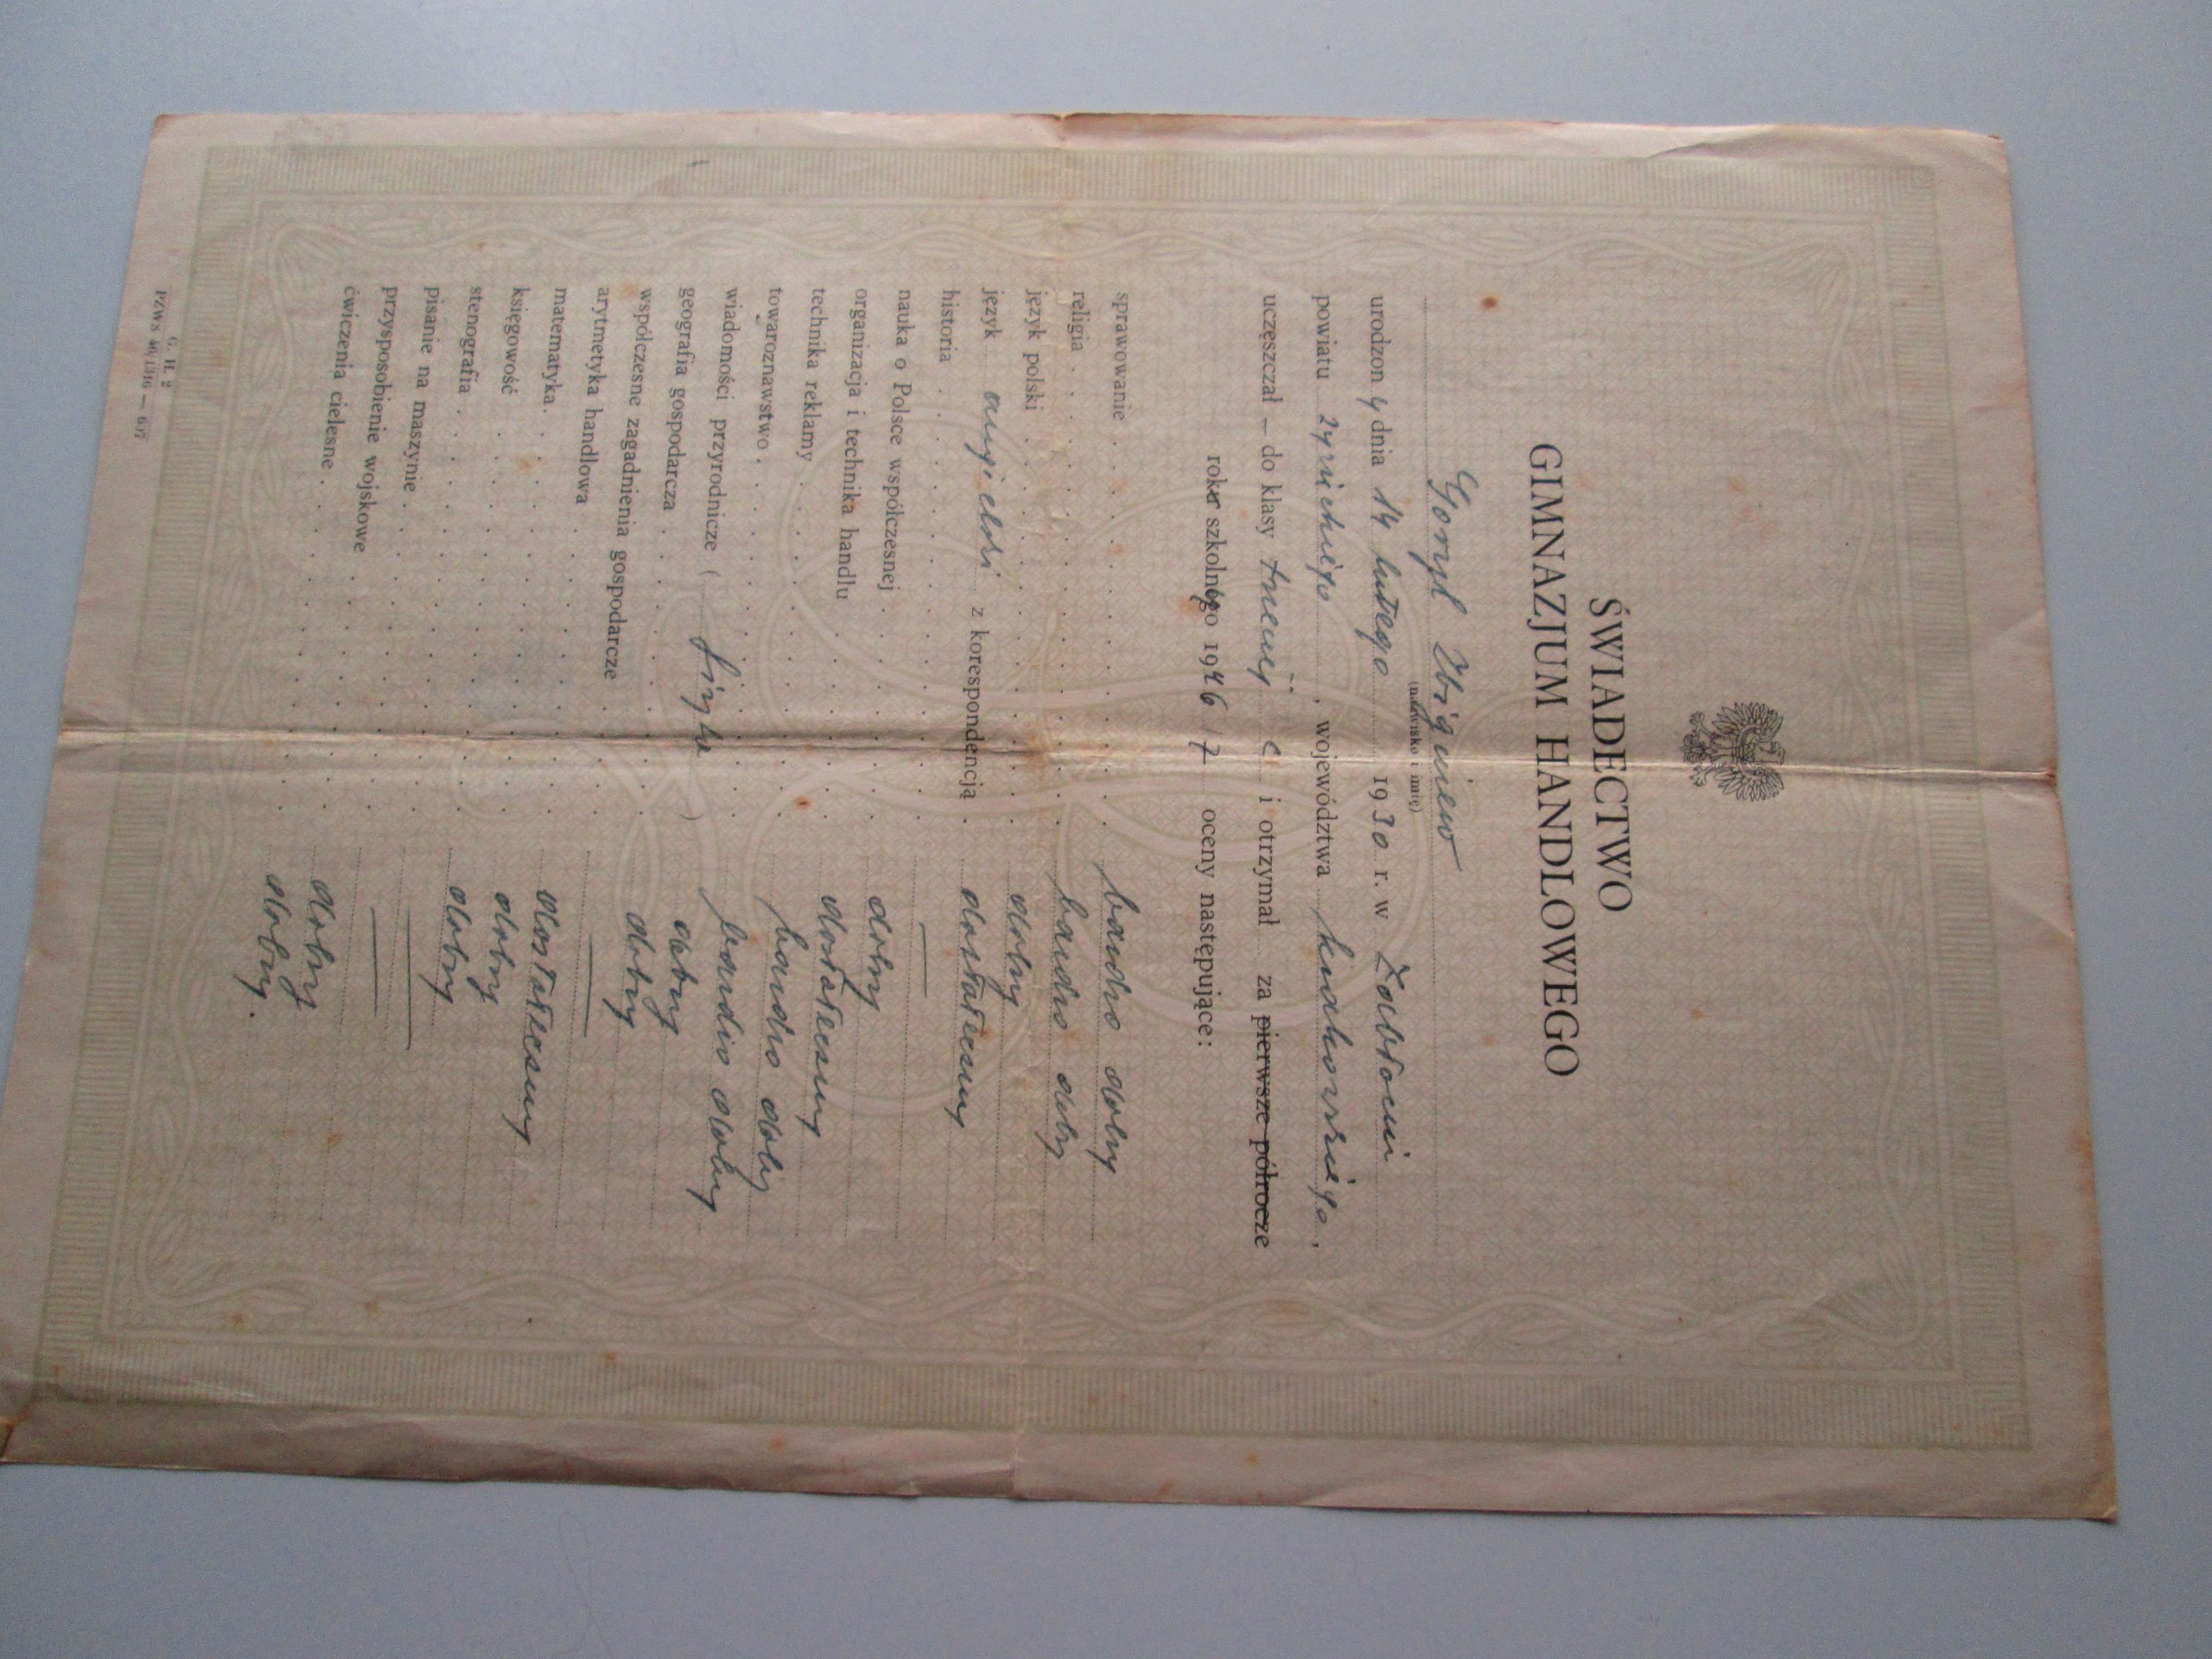 ŚWIADECTWO
GIMNAZJUM HANDLOWEGO
Goryl Zbigniew
(nazwisko i imię)
urodzony dnia 14 lutego 1930 r. w Żabłoci
powiatu żywieckiego, województwa krakowskiego,
uczęszczał — do klasy trzeciej c i otrzymał za pierwsze półrocze
roku szkolnego 1946/7 oceny następujące:
sprawowanie . . . . . . . . . bardzo dobry
religia . . . . . . . . . . bardzo dobry
język polski . . . . . . . . . dobry
język angielski z korespondencją . dostateczny
historia . . . . . . . . . . —
nauka o Polsce współczesnej . . . . . dobry
organizacja i technika handlu . . . . . dostateczny
technika reklamy . . . . . . . . bardzo dobry
towaroznawstwo . . . . . . . . bardzo dobry
wiadomości przyrodnicze ( fizyka ) . dobry
geografia gospodarcza . . . . . . . dobry
współczesne zagadnienia gospodarcze . . . —
arytmetyka handlowa . . . . . . . dostateczny
matematyka . . . . . . . . . dobry
księgowość . . . . . . . . . dobry
stenografia . . . . . . . . . —
pisanie na maszynie . . . . . . . —
przysposobienie wojskowe . . . . . . dobry
ćwiczenia cielesne . . . . . . . . dobry.
G. H. 2
PZWS 46/1316 — 617